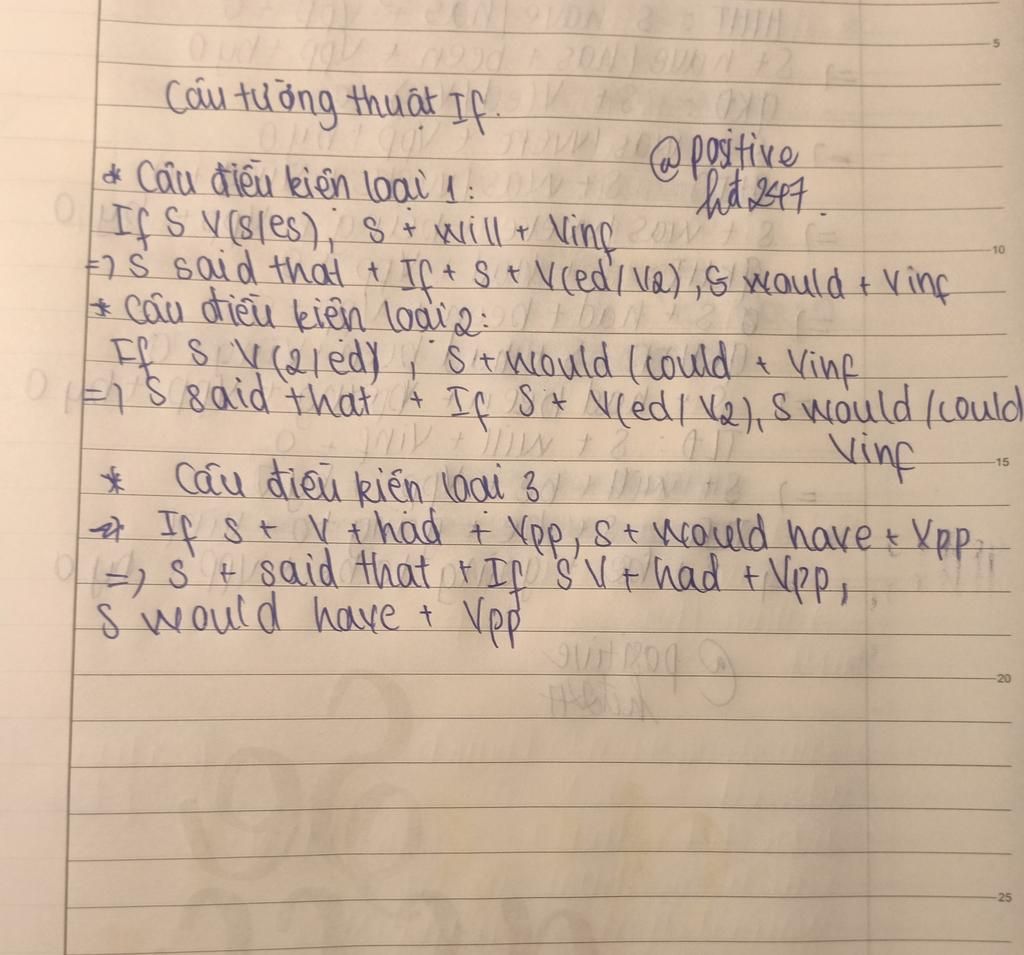 Câu tường thuật If.
@positive
hđ 247.
* Câu điều kiện loại 1:
If S V(s/es), S + will + Vinf
=> S said that + If + S + V(ed/V2), S would + Vinf
* Câu điều kiện loại 2:
If S V(2/ed), S + would/could + Vinf
=> S said that + If S + V(ed/V2), S would/could
Vinf
* Câu điều kiện loại 3
=> If S + V + had + Vpp, S + would have + Vpp.
=> S + said that + If S V + had + Vpp,
S would have + Vpp
5
10
15
20
25